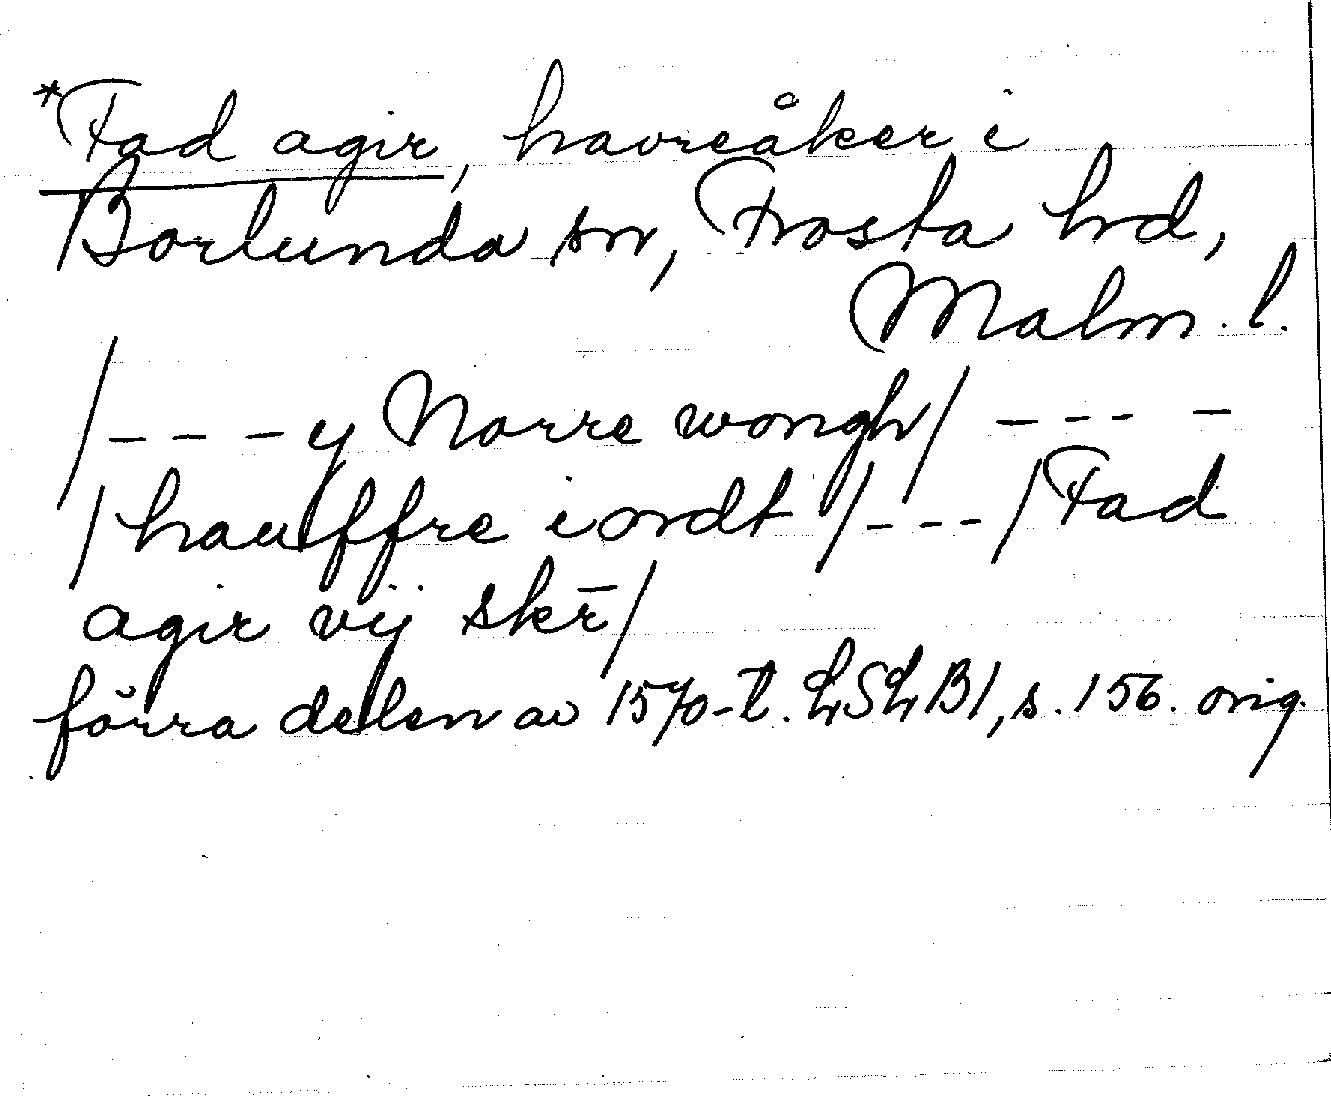 *Fad agir, havreåker i
Borlunda sn, Frosta hd,
Malm. l.
/- - - y Norre wongh/ - - - -
/hauffre iordt /- - -/ Fad
agir vij skr̄/
förra delen av 1570-t. LSLB1, s. 156. orig.